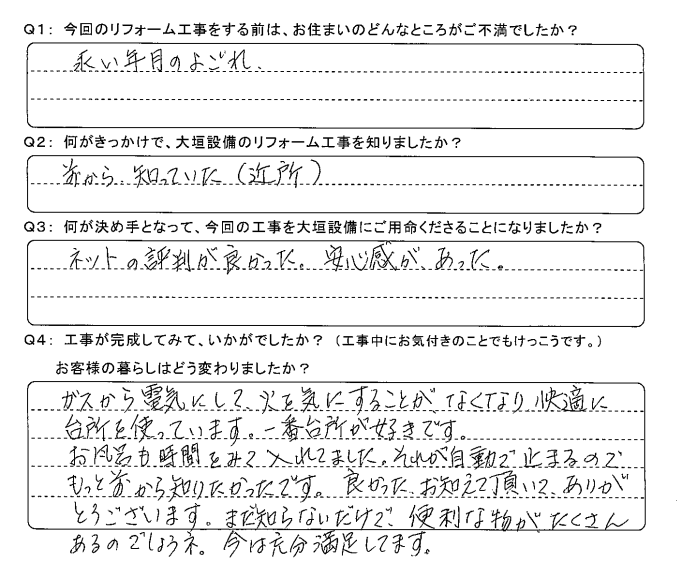 Q1: 今回のリフォーム工事をする前は、お住まいのどんなところがご不満でしたか？
永い年月のよごれ、
Q2: 何がきっかけで、大垣設備のリフォーム工事を知りましたか？
前から、知っていた（近所）
Q3: 何が決め手となって、今回の工事を大垣設備にご用命くださることになりましたか？
ネットの評判が良かった。安心感が、あった。
Q4: 工事が完成してみて、いかがでしたか？（工事中にお気付きのことでもけっこうです。）
お客様の暮らしはどう変わりましたか？
ガスから電気にして、火を気にすることが、なくなり快適に
台所を使っています。一番台所が好きです。
お風呂も時間をみて入れてました。それが自動で止まるので
もっと前から知りたかったです。良かった、お知えて頂いて、ありが
とうございます。まだ知らないだけで、便利な物が、たくさん
あるのでしょうネ。今は充分満足してます。